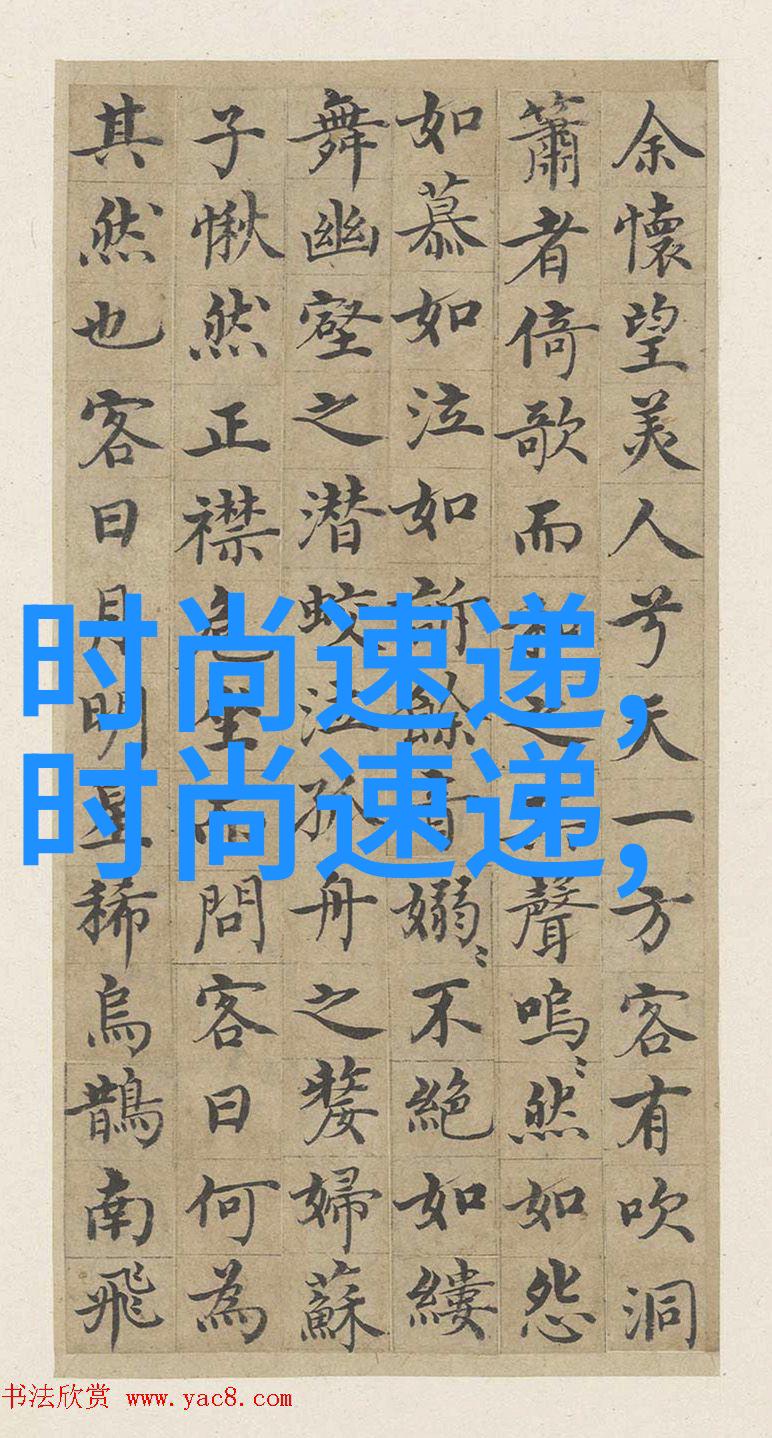 余懷望美人兮天一方客有吹洞
簫者倚歌而和之其聲嗚〻然如怨
如慕如泣如訴餘音嫋〻不絶如縷
舞幽壑之潜蛟泣孤舟之嫠婦蘇
子愀然正襟危坐而問客曰何為
其然也客曰月明星稀烏鵲南飛
时尚速递,
时尚速递,
书法欣赏 www.yac8.com